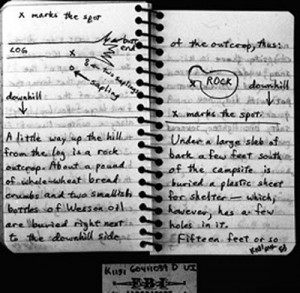 x marks the spot
LOG
x
butt
end
o
sapling
downhill
A little way up the hill
from the log is a rock
outcrop. About a pound
of whole-wheat bread
crumbs and two smallish
bottles of Wesson oil
are buried right next
to the downhill side
of the outcrop, thus:
x
ROCK
downhill
x marks the spot
Under a large slab of
back a few feet south
of the campsite is
buried a plastic sheet
for shelter — which,
however, has a few
holes in it.
Fifteen feet or so